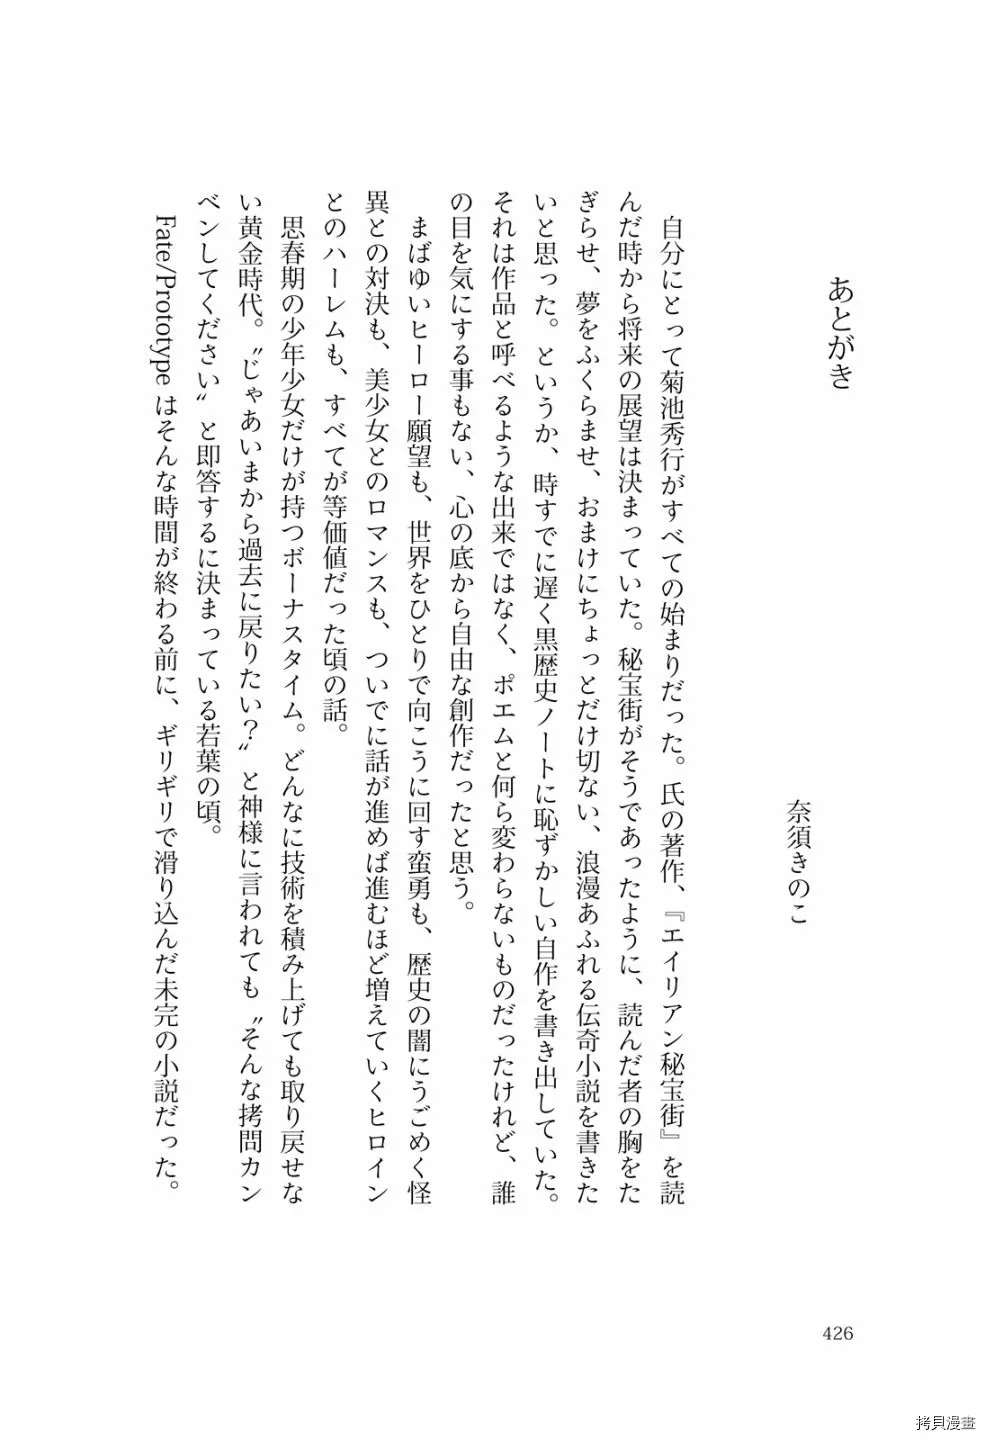 あとがき
奈須きのこ
　自分にとって菊池秀行がすべての始まりだった。氏の著作、『エイリアン秘宝街』を読
んだ時から将来の展望は決まっていた。秘宝街がそうであったように、読んだ者の胸をた
ぎらせ、夢をふくらませ、おまけにちょっとだけ切ない、浪漫あふれる伝奇小説を書きた
いと思った。というか、時すでに遅く黒歴史ノートに恥ずかしい自作を書き出していた。
それは作品と呼べるような出来ではなく、ポエムと何ら変わらないものだったけれど、誰
の目を気にする事もない、心の底から自由な創作だったと思う。
　まばゆいヒーロー願望も、世界をひとりで向こうに回す蛮勇も、歴史の闇にうごめく怪
異との対決も、美少女とのロマンスも、ついでに話が進めば進むほど増えていくヒロイン
とのハーレムも、すべてが等価値だった頃の話。
　思春期の少年少女だけが持つボーナスタイム。どんなに技術を積み上げても取り戻せな
い黄金時代。〝じゃあいまから過去に戻りたい？〟と神様に言われても〝そんな拷問カン
ベンしてください〟と即答するに決まっている若葉の頃。
　Fate/Prototype はそんな時間が終わる前に、ギリギリで滑り込んだ未完の小説だった。
426
拷貝漫畫